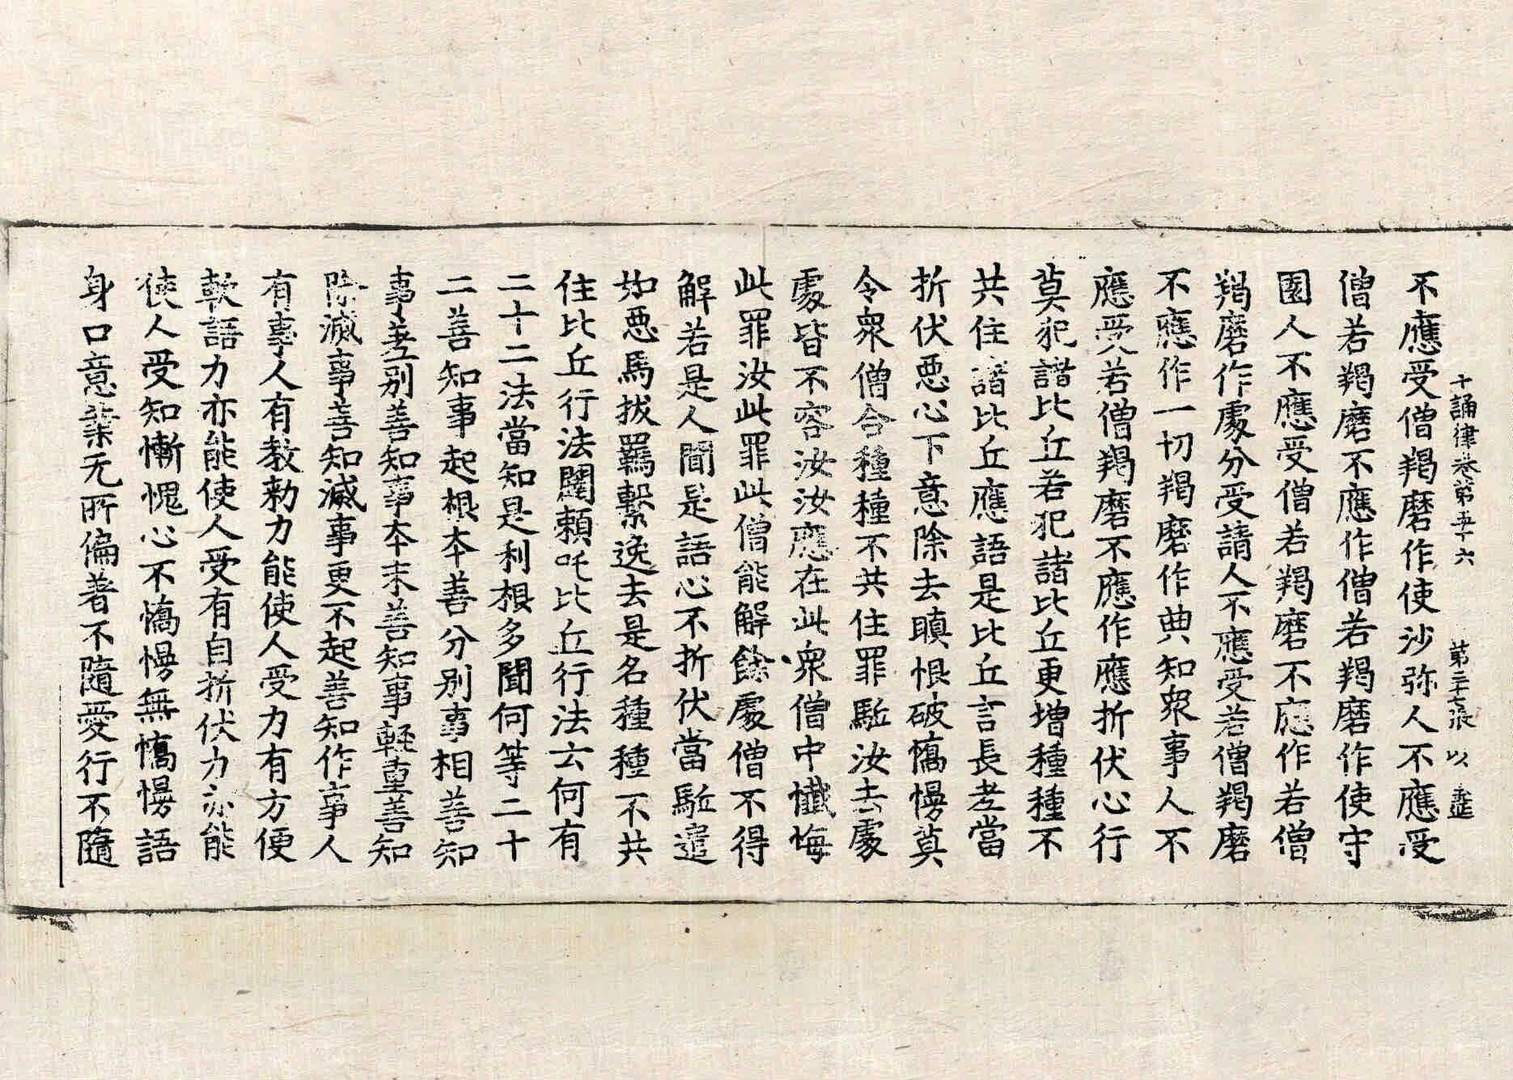 十誦律卷第五十六 第三十七張 以 進
不應受僧羯磨作使沙弥人不應受
僧若羯磨不應作僧若羯磨作使守
園人不應受僧若羯磨不應作若僧
羯磨作處分受請人不應受若僧羯磨
不應作一切羯磨作典知眾事人不
應受若僧羯磨不應作應折伏心行
莫犯諸比丘若犯諸比丘更增種種不
共住諸比丘應語是比丘言長老當
折伏惡心下意除去瞋恨破憍慢莫
令眾僧合種種不共住罪駈汝去處
處皆不容汝汝應在此眾僧中懺悔
此罪汝此罪此僧能解餘處僧不得
解若是人聞是語心不折伏當駈遣
如惡馬拔羈繫逸去是名種種不共
住比丘行法闥賴吒比丘行法云何有
二十二法當知是利根多聞何等二十
二善知事起根本善分別事相善知
事差別善知事本末善知事輕重善知
除滅事善知滅事更不起善知作事人
有事人有教勑力能使人受力有方便
軟語力亦能使人受有自折伏力亦能
使人受知慚愧心不憍慢無憍慢語
身口意業无所偏著不隨愛行不隨